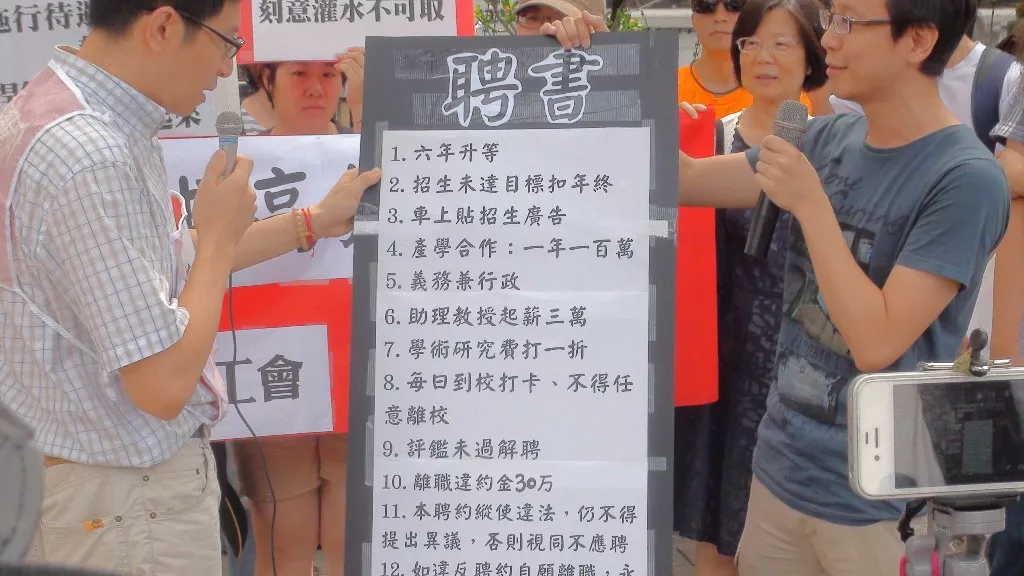 施行待遇
刻意灌水不可取
聘書
1. 六年升等
2. 招生未達目標扣年終
3. 車上貼招生廣告
4. 產學合作：一年一百萬
5. 義務兼行政
6. 助理教授起薪三萬
7. 學術研究費打一折
8. 每日到校打卡、不得任
意離校
9. 評鑑未過解聘
10. 離職違約金30万
11. 本聘約縱使違法，仍不得
提出異議，否則視同不應聘
12. 如違反聘約自願離職，永
高
工會